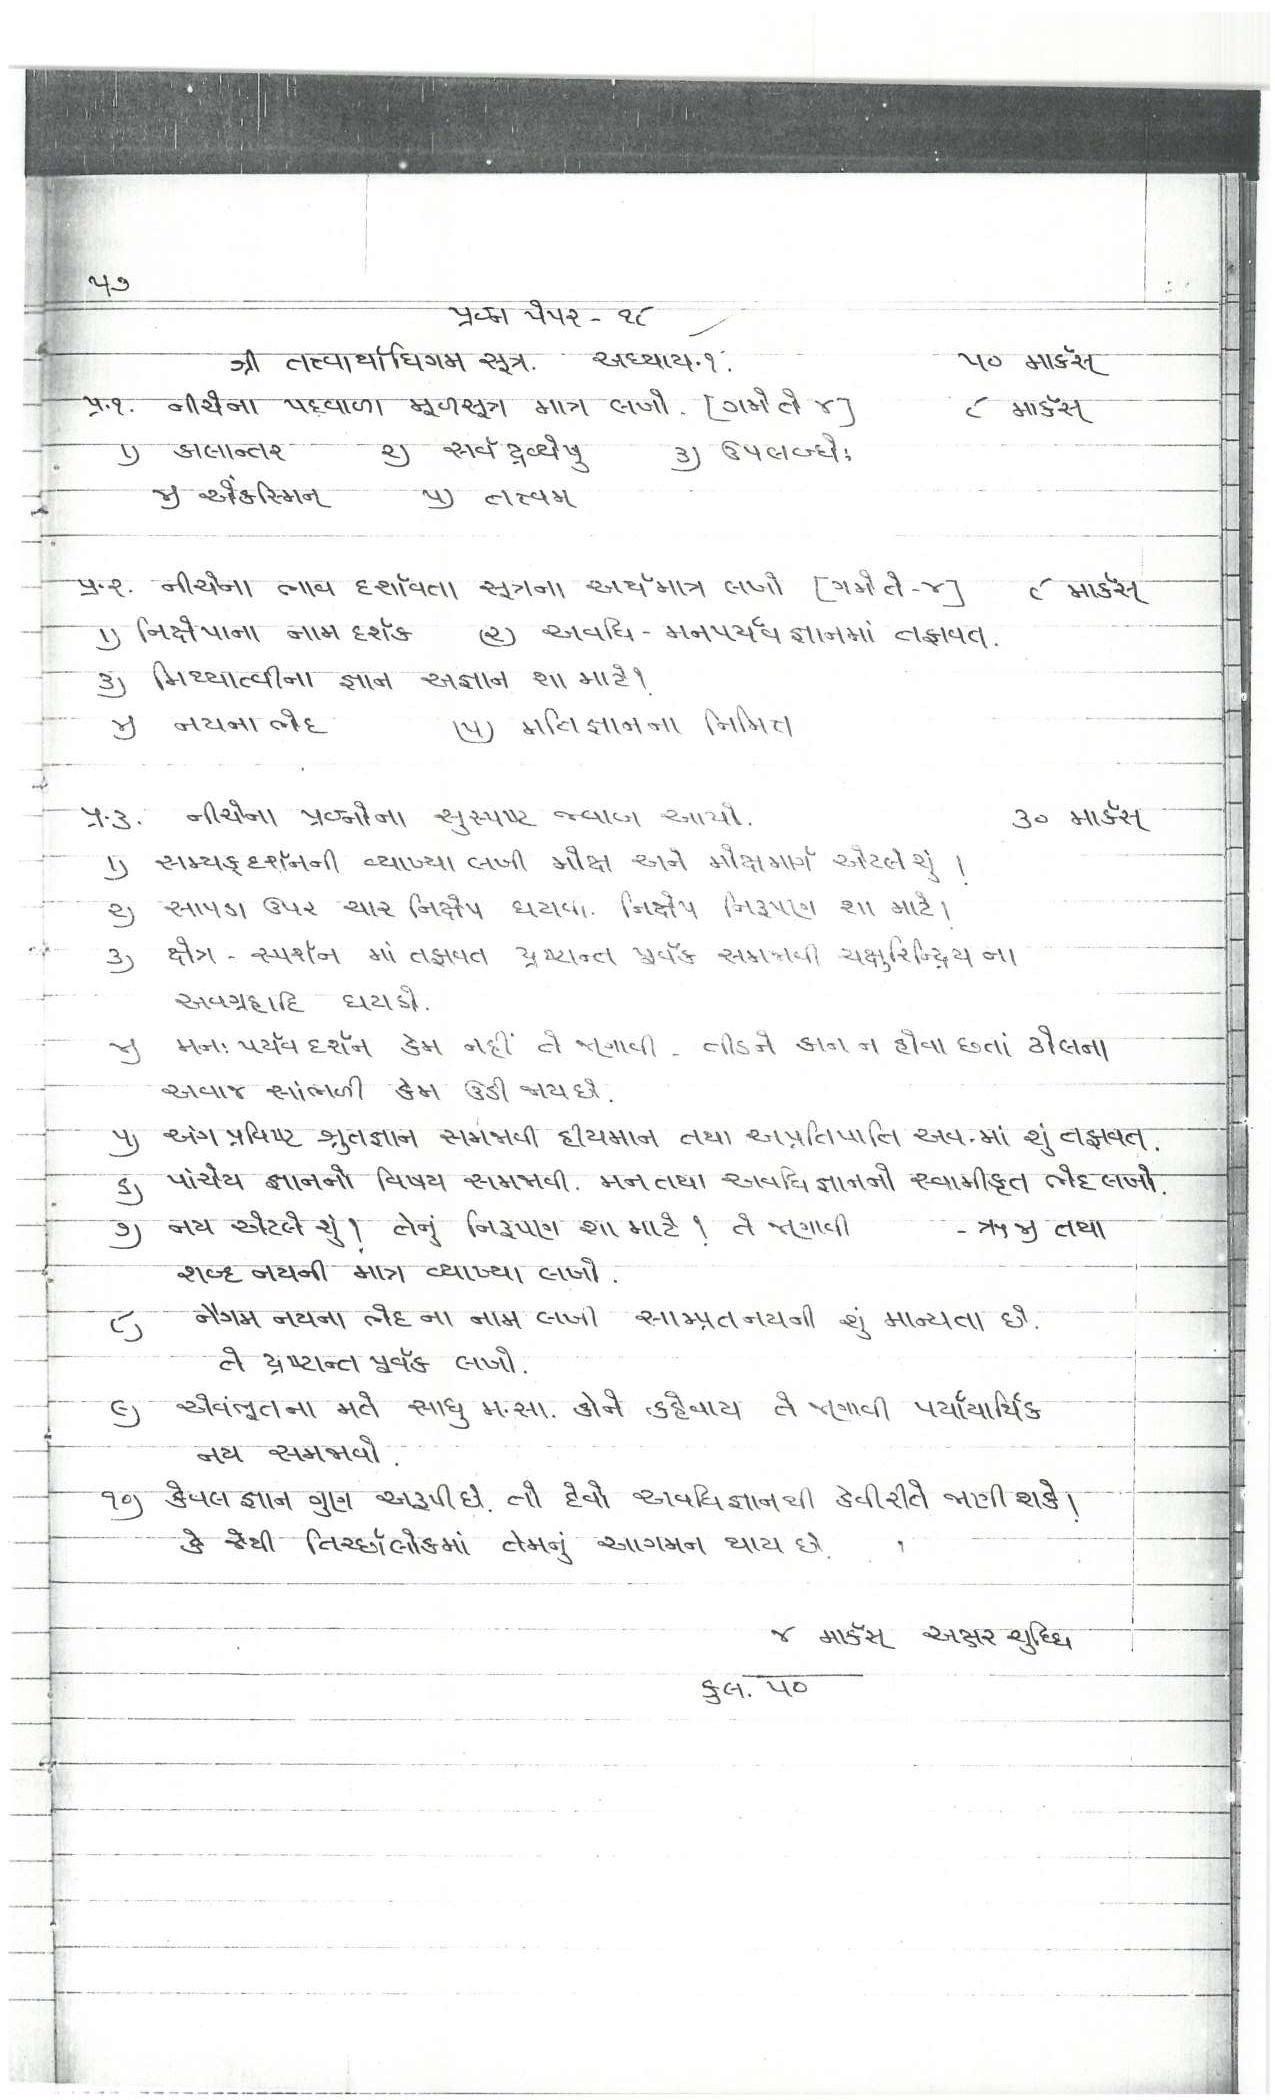 ૫૭
પ્રશ્ન પેપર - ૧૮
શ્રી તત્ત્વાર્થાધિગમ સૂત્ર. અધ્યાય.૧. ૫૦ માર્કસ્
પ્ર.૧. નીચેના પદવાળા મૂળસૂત્ર માત્ર લખો. [ગમે તે ૪] ૮ માર્કસ્
૧) કાલાન્તર ૨) સર્વદ્રવ્યેષુ ૩) ઉપલબ્ધેઃ
૪) એકસ્મિન્ ૫) તત્ત્વમ્
પ્ર.૨. નીચેના ભાવ દર્શાવતા સૂત્રના અર્થમાત્ર લખો [ગમે તે-૪] ૮ માર્કસ્
૧) નિક્ષેપાના નામ દર્શક (૨) અવધિ - મનપર્યવ જ્ઞાનમાં તફાવત.
૩) મિથ્યાત્વીના જ્ઞાન અજ્ઞાન શા માટે?
૪) નયના ભેદ (૫) મતિજ્ઞાનના નિમિત્ત
પ્ર.૩. નીચેના પ્રશ્નોના સુસ્પષ્ટ જવાબ આપો. ૩૦ માર્કસ્
૧) સમ્યક્દર્શનની વ્યાખ્યા લખી મોક્ષ અને મોક્ષમાર્ગ એટલે શું ?
૨) સાપડા ઉપર ચાર નિક્ષેપ ઘટાવી. નિક્ષેપ નિરૂપણ શા માટે?
૩) ક્ષેત્ર - સ્પર્શન માં તફાવત દ્રષ્ટાન્ત પૂર્વક સમજાવી ચક્ષુરિન્દ્રિય ના
અવગ્રહાદિ ઘટાડો.
૪) મનઃ પર્યવ દર્શન કેમ નહીં તે જણાવી - તીડને કાન ન હોવા છતાં ઢોલના
અવાજ સાંભળી કેમ ઉડી જાય છે.
૫) અંગ પ્રવિષ્ટ શ્રુતજ્ઞાન સમજાવી હીયમાન તથા અપ્રતિપાતિ અવ.માં શું તફાવત.
૬) પાંચેય જ્ઞાનનો વિષય સમજાવી. મન તથા અવધિજ્ઞાનનો સ્વામીકૃત ભેદ લખો.
૭) નય એટલે શું? તેનું નિરૂપણ શા માટે? તે જણાવી - ઋજુ તથા
શબ્દ નયની માત્ર વ્યાખ્યા લખો.
૮) નૈગમ નયના ભેદ ના નામ લખી સામ્પ્રતનયની શું માન્યતા છે.
તે દ્રષ્ટાન્ત પૂર્વક લખો.
૯) એવંભૂતના મતે સાધુ મ.સા. કોને કહેવાય તે જણાવી પર્યાયાર્થિક
નય સમજાવો.
૧૦) કેવલજ્ઞાન ગુણ અરૂપી છે. તો દેવો અવધિજ્ઞાનથી કેવી રીતે જાણી શકે?
કે જેથી તિર્ચ્છાલોકમાં તેમનું આગમન થાય છે.
૪ માર્કસ્ અક્ષર શુધ્ધિ
કુલ. ૫૦